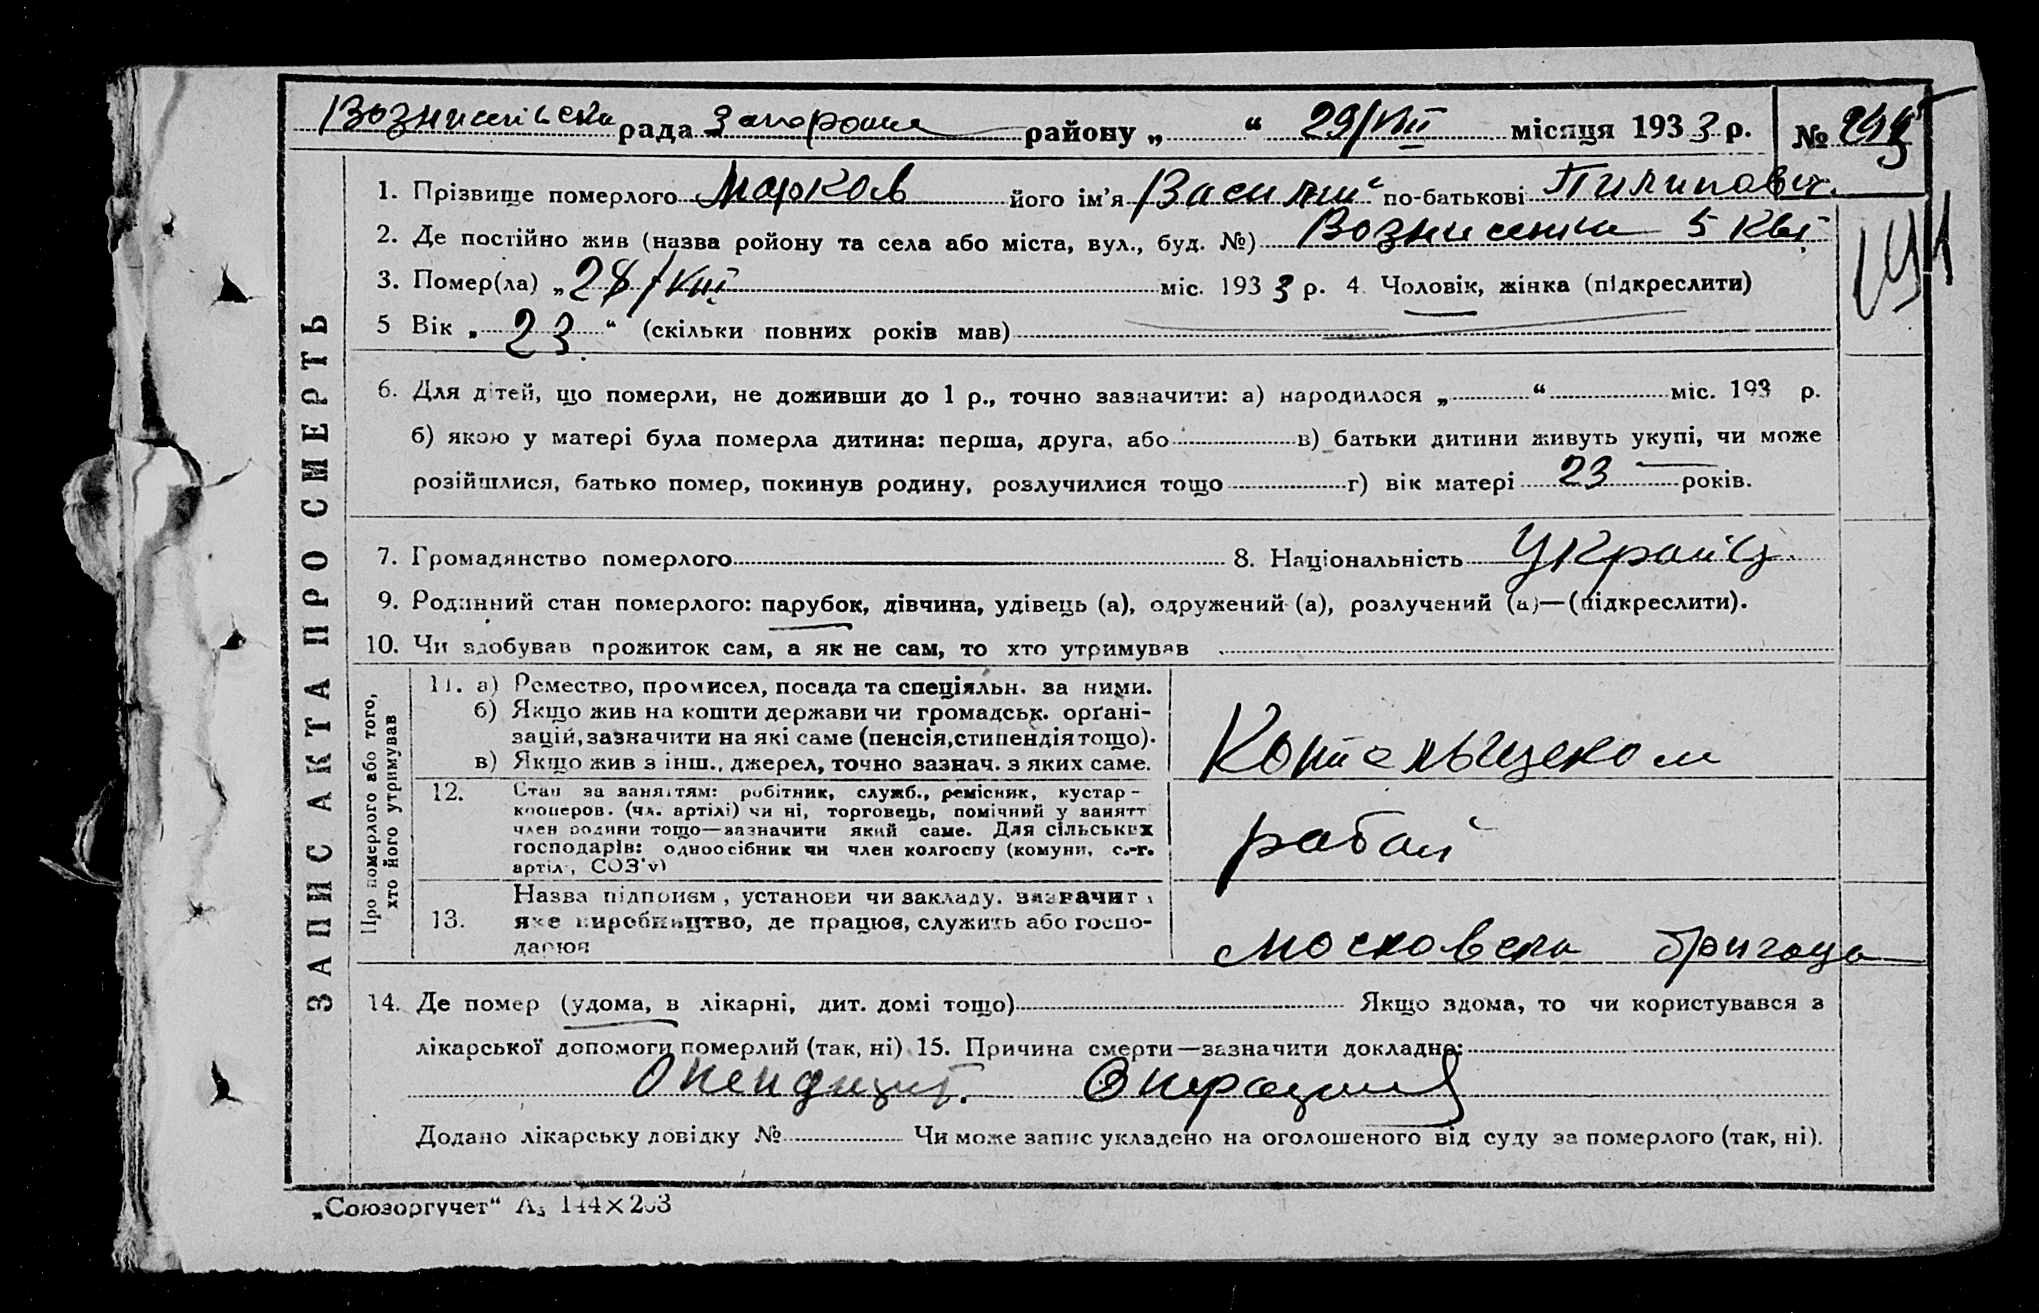 Вознисенівська рада Запоріжжя району „ “ 29/VIII місяця 1933 р. №
1. Прізвище померлого Марков його ім'я Василий по-батькові Пилипович
2. Де постійно жив (назва ройону та села або міста, вул., буд. №) Вознисенка 5 кв
3. Помер(ла) „28/VIII міс. 1933 р. 4. Чоловік, жінка (підкреслити)
5 Вік „ 23 “ (скільки повних років мав)
6. Для дітей, що померли, не доживши до 1 р., точно зазначити: а) народилося „ “ міс. 193 р.
б) якою у матері була померла дитина: перша, друга, або в) батьки дитини живуть укупі, чи може
розійшлися, батько помер, покинув родину, розлучилися тощо г) вік матері 23 років.
7. Громадянство померлого 8. Національність Україц
9. Родинний стан померлого: парубок, дівчина, удівець (а), одружений (а), розлучений (а)—(підкреслити).
10. Чи здобував прожиток сам, а як не сам, то хто утримував
ЗАПИС АКТА ПРО СМЕРТЬ
Про померлого або того,
хто його утримував
11. а) Ремество, промисел, посада та спеціяльн. за ними.
б) Якщо жив на кошти держави чи громадськ. орґані-
зацій, зазначити на які саме (пенсія, стипендія тощо).
в) Якщо жив з інш., джерел, точно зазнач. з яких саме.
12. Стан за заняттям: робітник, служб., ремісник, кустар-
кооперов. (чл. артілі) чи ні, торговець, помічний у занятт
член родини тощо—зазначити який саме. Для сільських
господарів: одноосібник чи член колгоспу (комуни, с.-г.
артіл, СОЗ'у)
рабой
13. Назва підприєм, установи чи закладу. зазначит
яке виробництво, де працює, служить або госпо-
дарює
московска бригаца
14. Де помер (удома, в лікарні, дит. домі тощо) Якщо здома, то чи користувався з
лікарської допомоги померлий (так, ні) 15. Причина смерти—зазначити докладно:
Опендицит. Операция
Додано лікарську довідку № Чи може запис укладено на оголошеного від суду за померлого (так, ні).
„Союзоргучет“